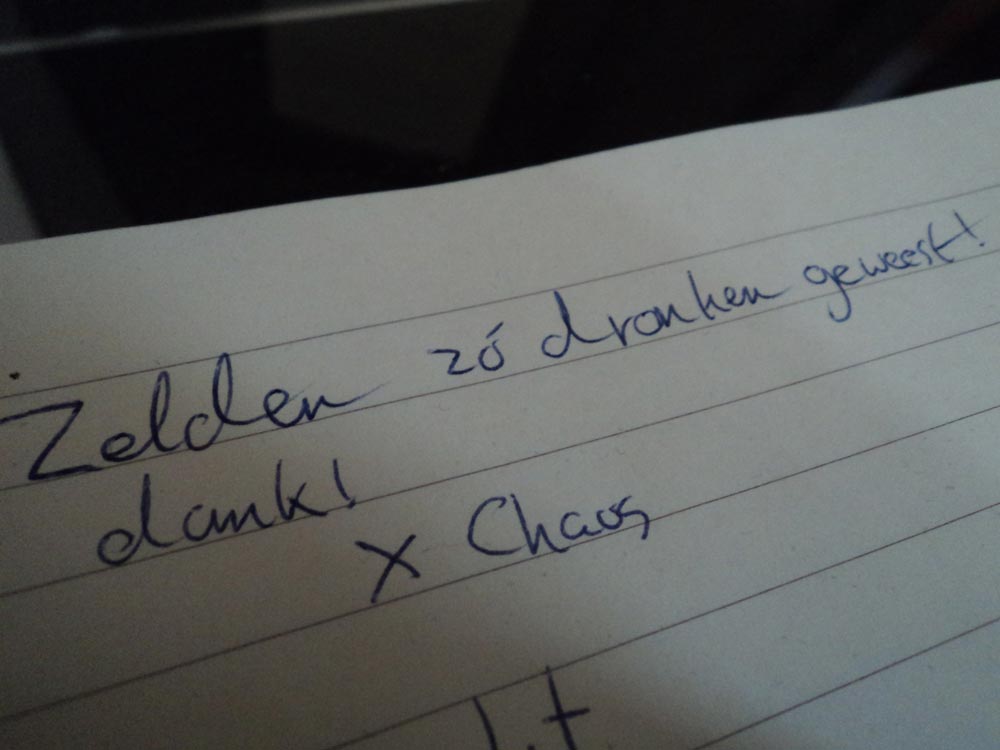 Zelden zó dronken geweest!
dank!
x Chaos